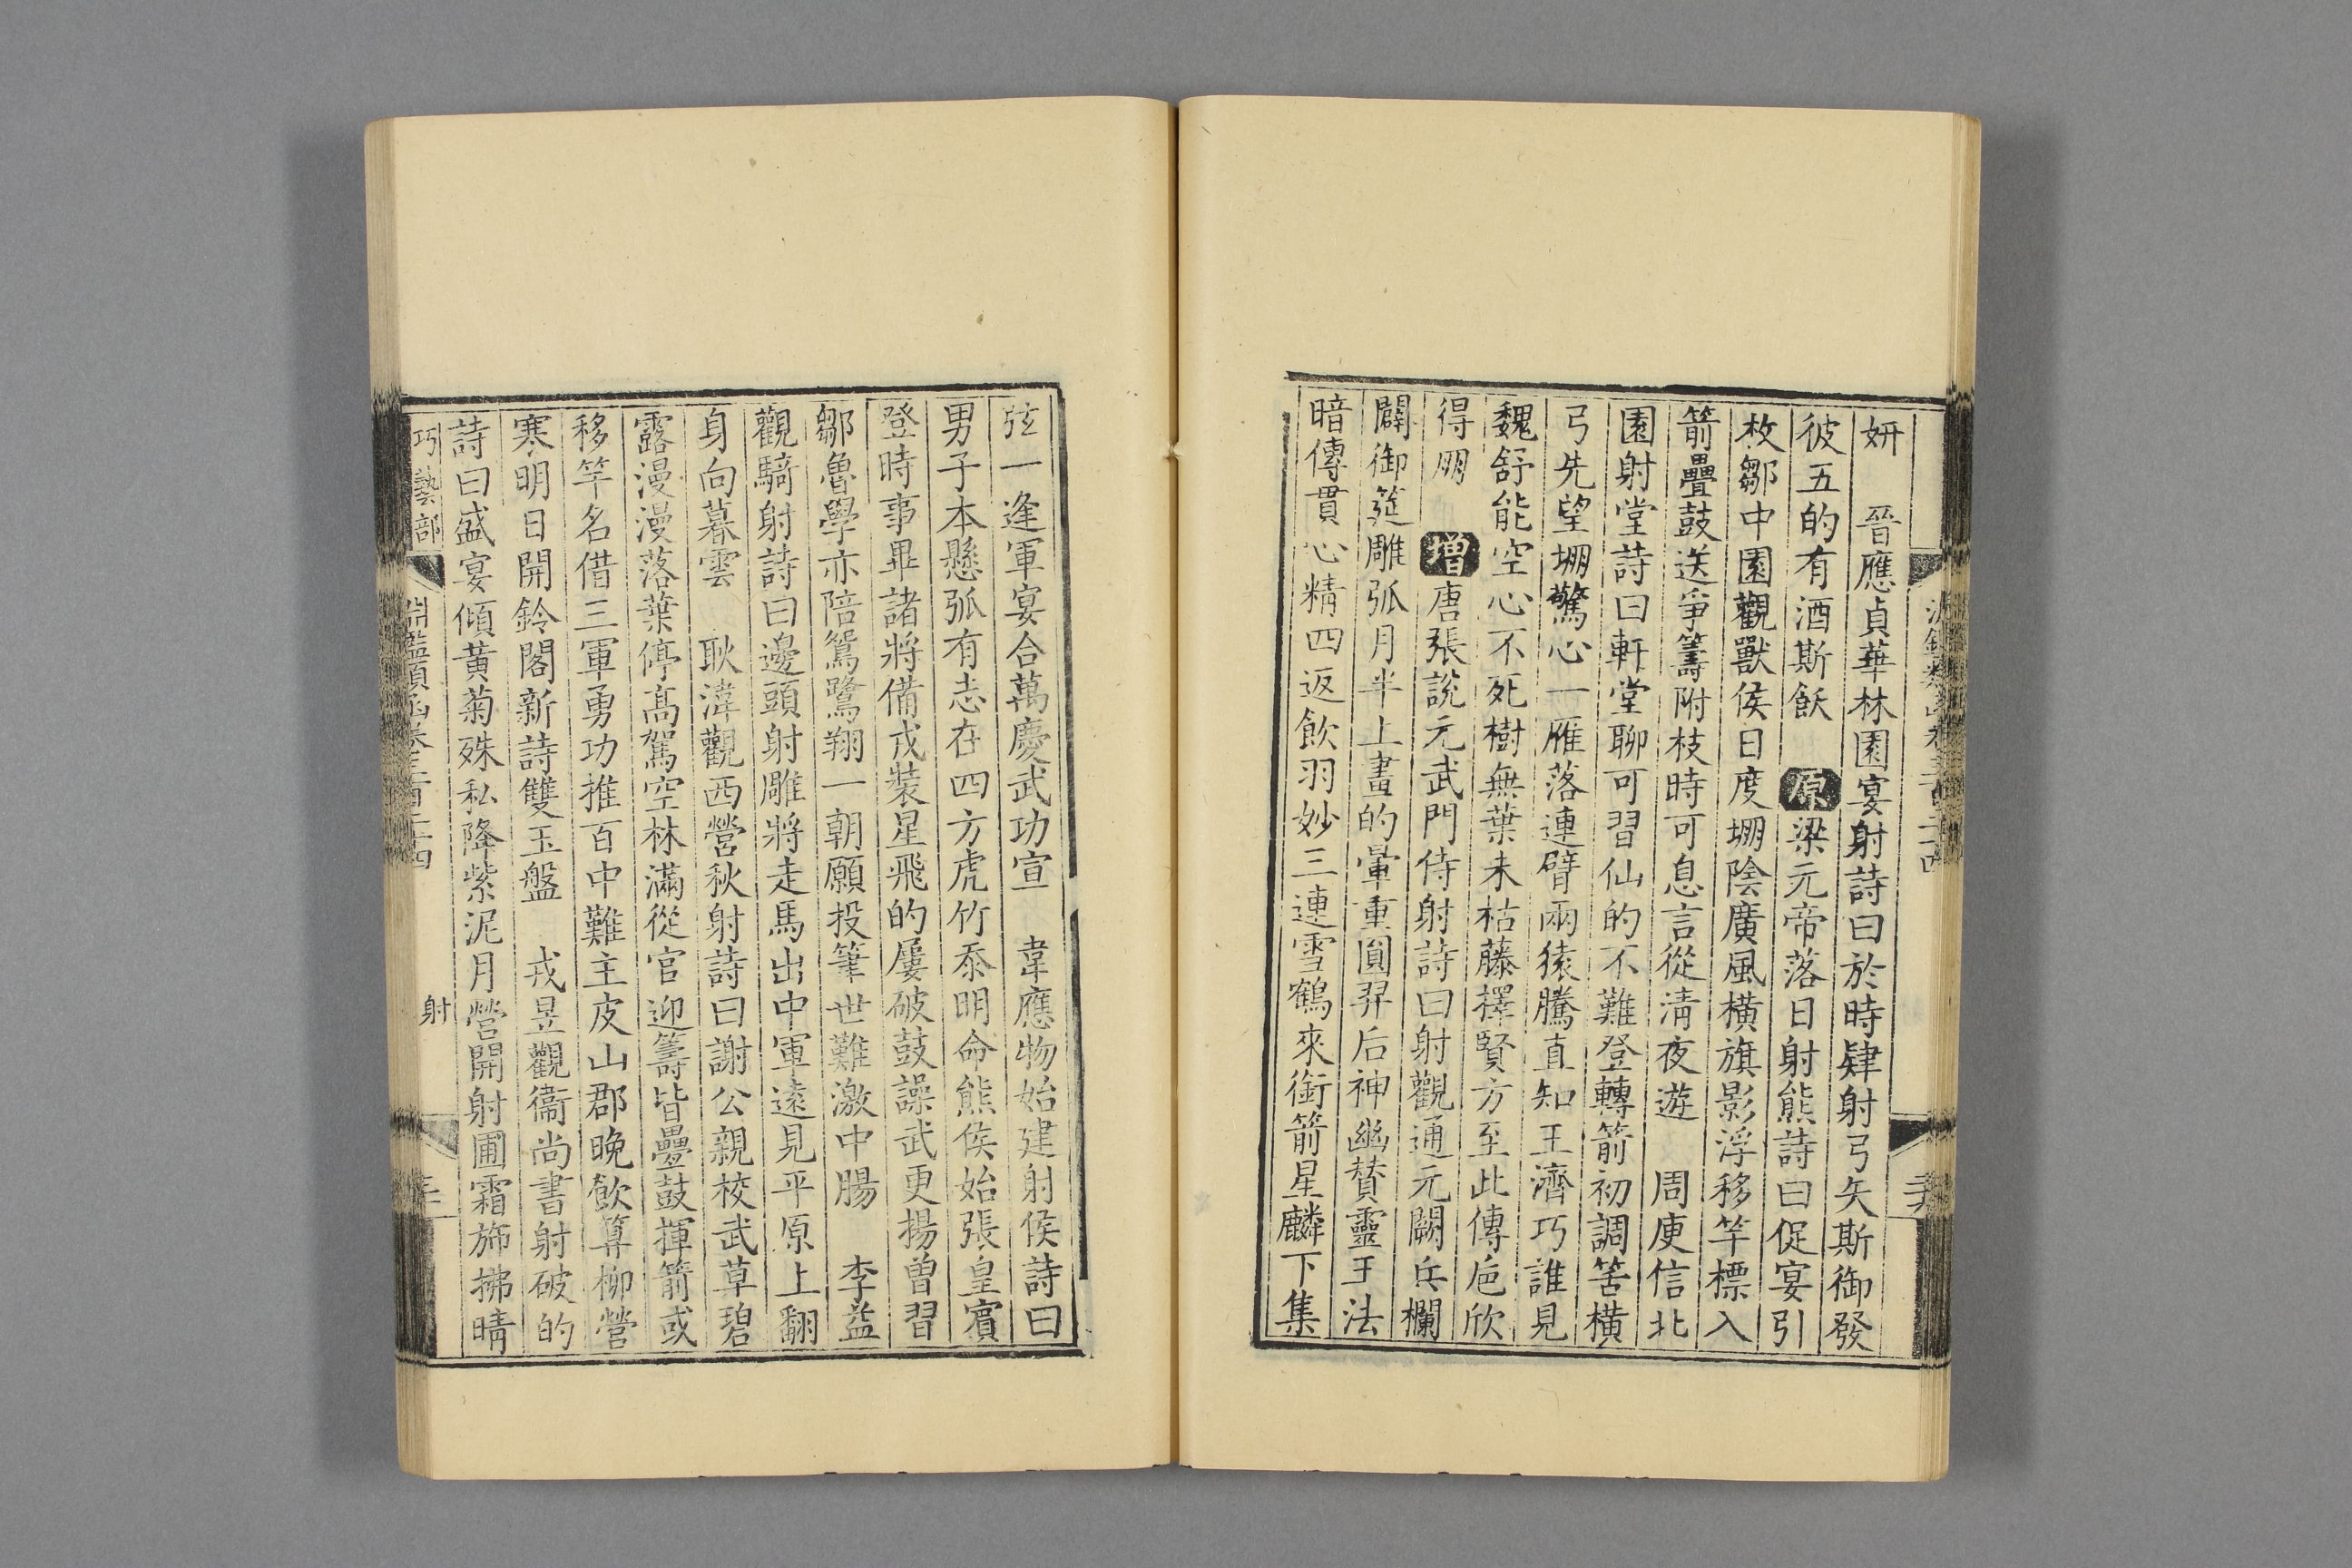 妍　晉應貞華林園宴射詩曰於時肄射弓矢斯御發
彼五的有酒斯飫　原梁元帝落日射熊詩曰促宴引
枚鄒中園觀獸侯日度堋陰廣風橫旗影浮移竿標入
箭疊鼓送爭籌附枝時可息言從淸夜遊　周庾信北
園射堂詩曰軒堂聊可習仙的不難登轉箭初調筈橫
弓先望堋驚心一雁落連臂兩猿騰直知王濟巧誰見
魏舒能空心不死樹無葉未枯藤擇賢方至此傳巵欣
得朋　增唐張說元武門侍射詩曰射觀通元闕兵欄
闢御筵雕弧月半上畫的暈重圓羿后神幽贊靈王法
暗傳貫心精四返飲羽妙三連雪鶴來銜箭星麟下集
弦一逢軍宴合萬慶武功宣　韋應物始建射侯詩曰
男子本懸弧有志在四方虎竹忝明命熊侯始張皇賓
登時事畢諸將備戎裝星飛的屢破鼓譟武更揚曾習
鄒魯學亦陪鴛鷺翔一朝願投筆世難激中腸　李益
觀騎射詩曰邊頭射雕將走馬出中軍遠見平原上翻
身向暮雲　耿湋觀西營秋射詩曰謝公親校武草碧
露漫漫落葉停高駕空林滿從官迎籌皆疊鼓揮箭或
移竿名借三軍勇功推百中難主皮山郡晚飲算柳營
寒明日開鈴閣新詩雙玉盤　戎昱觀衞尚書射破的
詩曰盛宴傾黃菊殊私降紫泥月營開射圃霜旆拂晴
巧藝部　淵鑑類函卷三百二十四　射